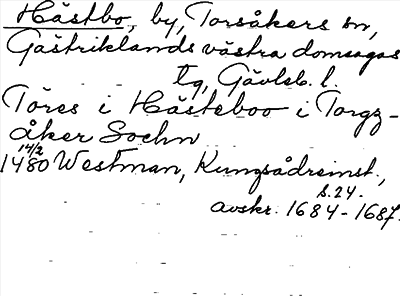 Hästbo, by, Torsåkers sn,
Gästriklands västra domsagas
tg, Gävleb. l.
Töres i Hästeboo i Torgz-
åker Sochn
14/2
1480 Westman, Kungsådreinst.,
s. 24.
avskr. 1684-1687.